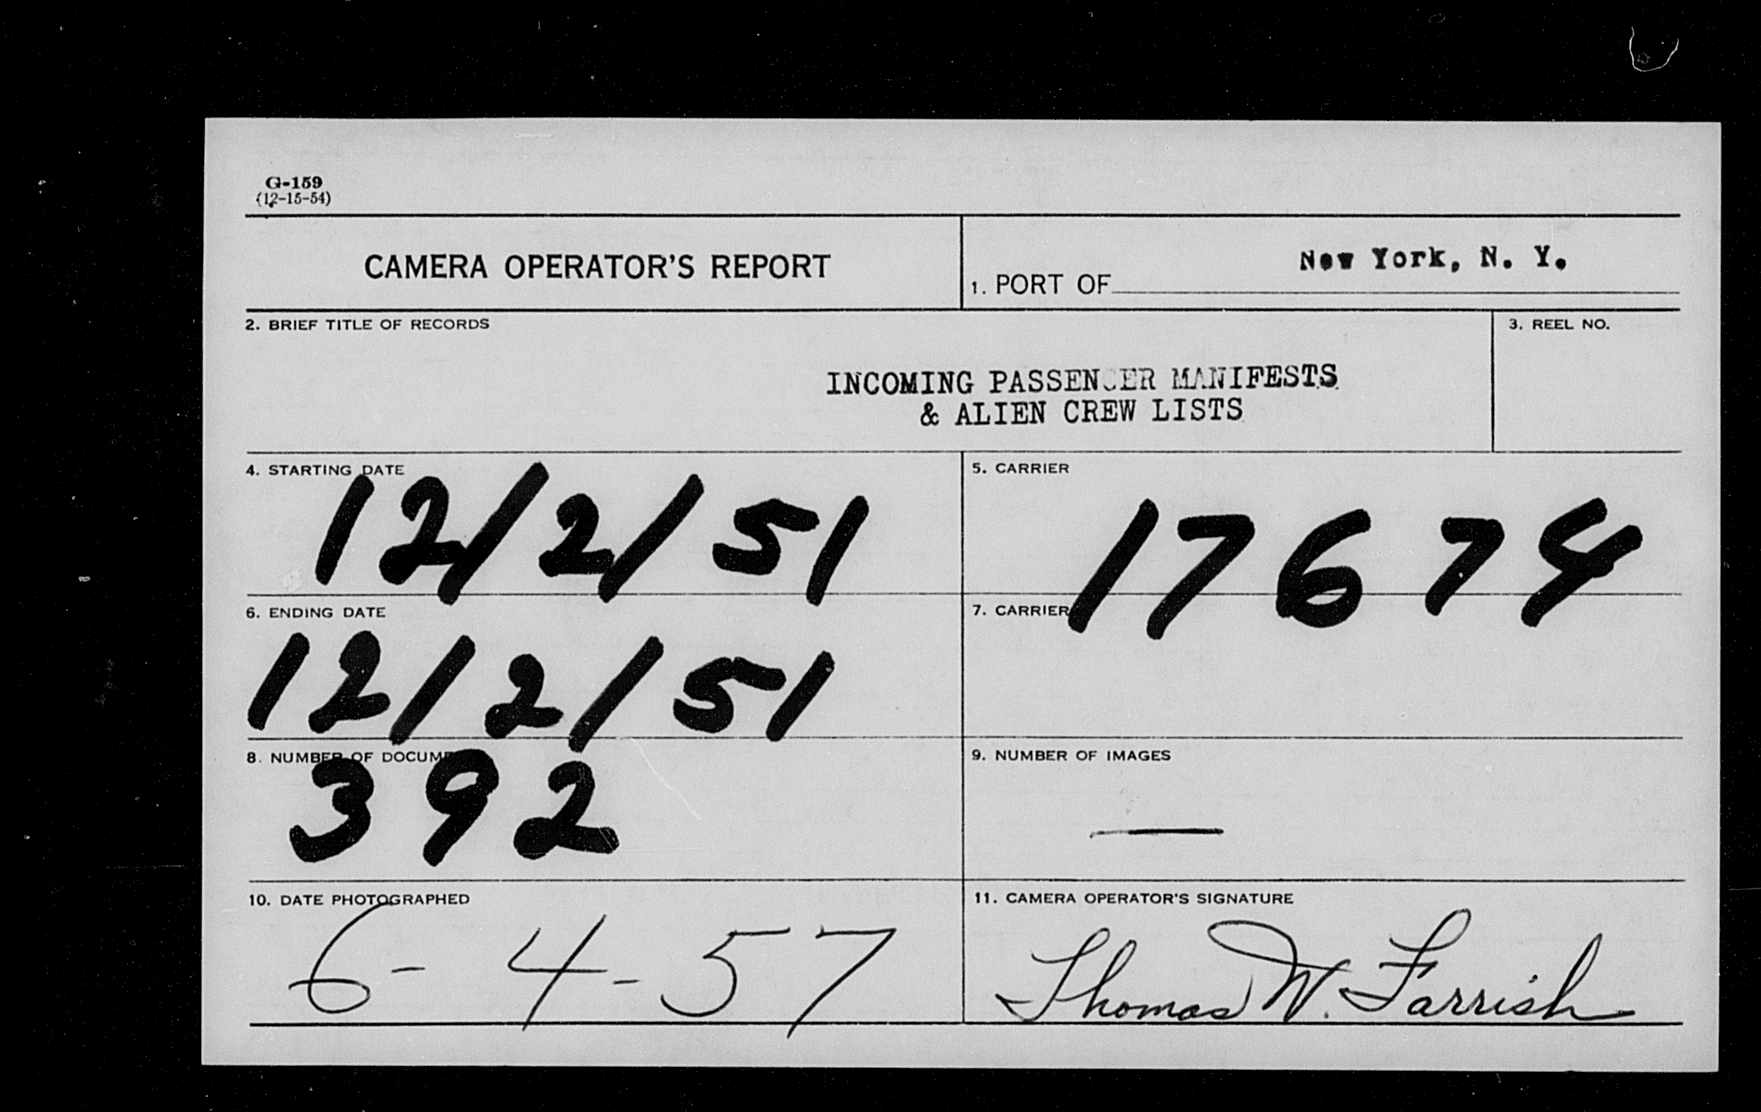 G-159
(12-15-54)
CAMERA OPERATOR'S REPORT
1. PORT OF New York, N. Y.
2. BRIEF TITLE OF RECORDS
3. REEL NO.
INCOMING PASSENGER MANIFESTS
& ALIEN CREW LISTS
4. STARTING DATE
12/2/51
5. CARRIER
17674
6. ENDING DATE
12/2/51
7. CARRIER
8. NUMBER OF DOCUM
392
9. NUMBER OF IMAGES
—
10. DATE PHOTOGRAPHED
6-4-57
11. CAMERA OPERATOR'S SIGNATURE
Thomas W. Farrish